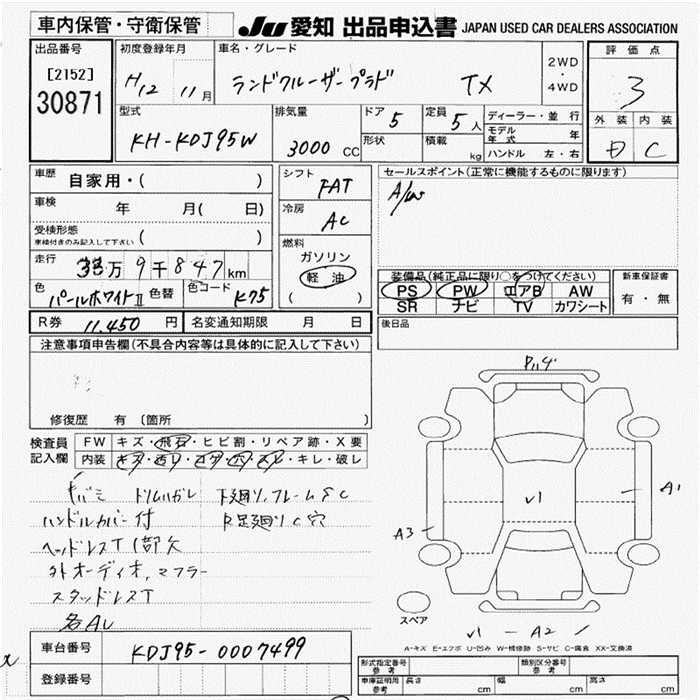 車内保管・守衛保管 JU 愛知 出品申込書 JAPAN USED CAR DEALERS ASSOCIATION
出品番号 初度登録年月 車名・グレード 2WD・4WD 評価点
[2152] H12 11月 ランドクルーザープラド TX 3
30871 型式 排気量 ドア 5 定員 5人 ディーラー・並行 外装 内装
KH-KDJ95W 3000 CC 形状 積載 kg モデル年式 年 D C
ハンドル 左・右
車歴 自家用・( ) シフト FAT セールスポイント(正常に機能するものに限ります)
車検 年 月( 日) 冷房 AC A/W
受検形態 車検付きのみ記入して下さい ( ) 燃料
走行 万9千847km ガソリン 装備品(純正品に限り○をつけてください) 新車保証書
色 パールホワイトII 色替 色コード K75 軽油 PS PW エアB AW 有・無
( ) SR ナビ TV カワシート
R券 11.450 円 名変通知期限 月 日 後日品
注意事項申告欄(不具合内容等は具体的に記入して下さい)
修復歴 有 〔箇所
検査員 FW キズ・飛石・ヒビ割・リペア跡・X要
記入欄 内装 キズ・汚レ・コゲ・穴・スレ・キレ・破レ
キバミ ドリムハガレ 下廻り,フレームSC
ハンドルカバー付 R足廻りC穴
ヘッドレスT1部欠
外オーディオ,マフラー
スタッドレスT
名AU
A1
V1
A3
スペア
V1 - A2
A-キズ E-エクボ U-凹み W-補修跡 S-サビ C-腐食 XX-交換済
車台番号 KDJ95-0007499
登録番号
形式指定番号 参考 類別区分番号 参考
車庫証明用 参考 長さ cm 幅 cm 高さ cm